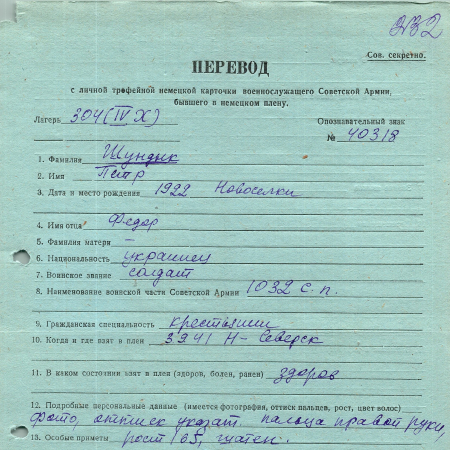 232
Сов. секретно.
ПЕРЕВОД
с личной трофейной немецкой карточки военнослужащего Советской Армии,
бывшего в немецком плену.
Лагерь 304 (IV X) Опознавательный знак
№ 40318
1. Фамилия Шундик
2. Имя Петр
3. Дата и место рождения 1922 Новоселки
4. Имя отца Федор
5. Фамилия матери –
6. Национальность украинец
7. Воинское звание солдат
8. Наименование воинской части Советской Армии 1032 с. п.
9. Гражданская специальность крестьянин
10. Когда и где взят в плен 3 9 41 Н-Северск
11. В каком состоянии взят в плен (здоров, болен, ранен) здоров
12. Подробные персональные данные (имеется фотография, оттиск пальцев, рост, цвет волос)
фото, оттиск указат. пальца правой руки,
13. Особые приметы рост 165, шатен.